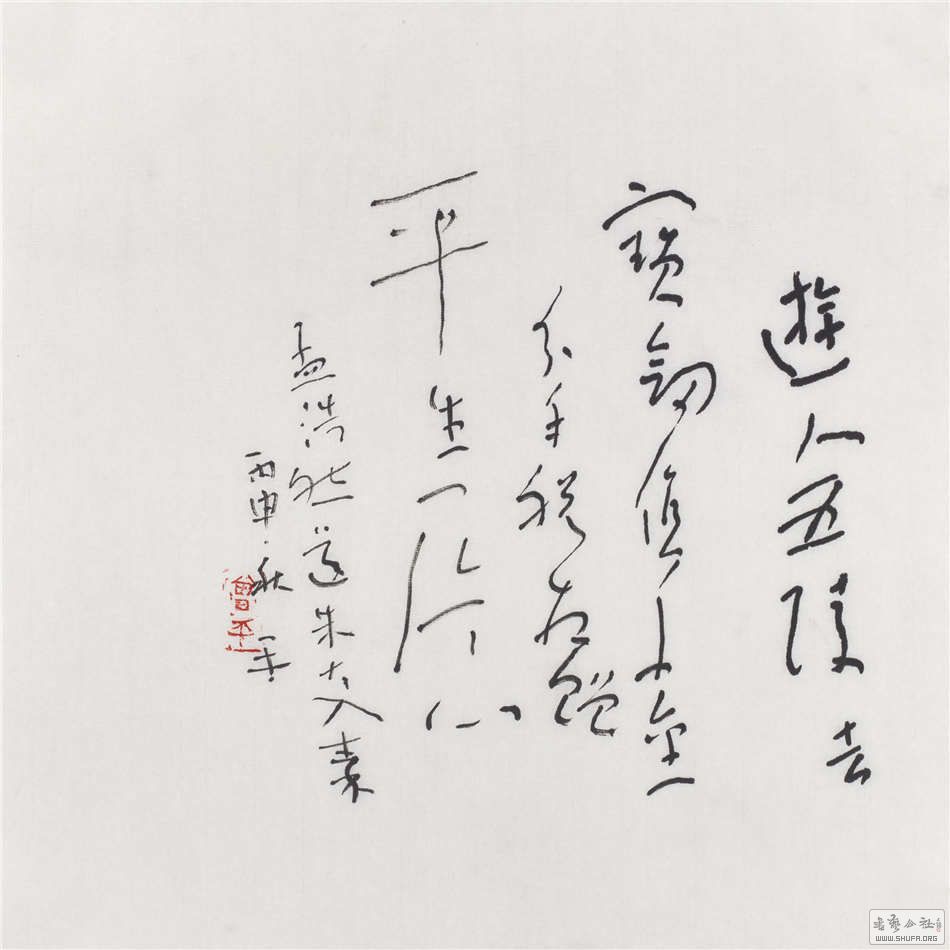 遊人五陵去
寶劍值千金
分手脫相贈
平生一片心
孟浩然送朱大入秦
丙申秋
曾平
書藝公社
WWW.SHUFA.ORG